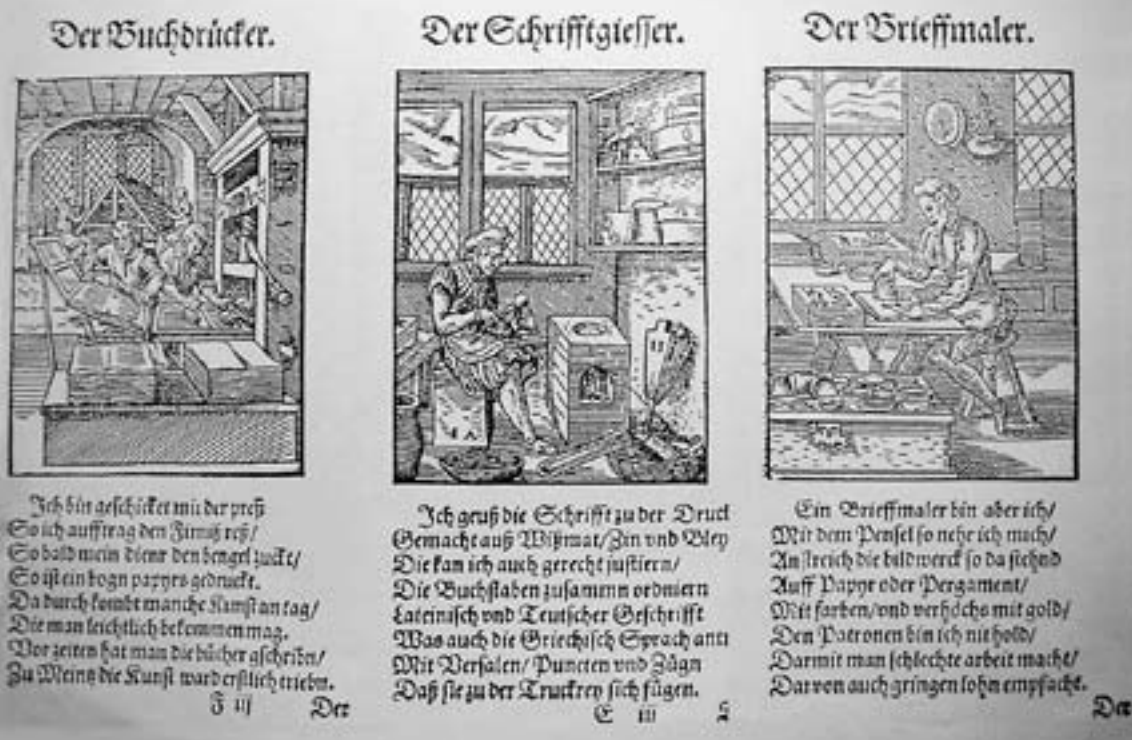 Der Buchdrücker.
Ich bin geschicket mit der preß
So ich aufftrag den Firniß reß/
So bald mein dienr den bengel zuckt/
So ist ein bogn papyrs gedruckt.
Da durch kombt manche Kunst an tag/
Die man leichtlich bekommen mag.
Vor zeiten hat man die bücher gschribn/
Zu Meintz die Kunst ward erstlich triebn.
F iij
Der
Der Schrifftgiesser.
Ich geuß die Schrifft zu der Druck
Gemacht auß Wißmat/Zin vnd Bley
Die kan ich auch gerecht justiern/
Die Buchstaben zusammn ordniern
Lateinisch vnd Teutscher Geschrifft
Was auch die Griechisch Sprach antt
Mit Versalen/Puncten vnd Zügn
Daß sie zu der Truckrey sich fügen.
E iij
Der Brieffmaler.
Ein Brieffmaler bin aber ich/
Mit dem Pensel so nehr ich mich/
Anstreich die bildwerck so da stehnd
Auff Papyr oder Pergament/
Mit farben/vnd verhöchs mit gold/
Den Patronen bin ich nit hold/
Darmit man schlechte arbeit macht/
Darvon auch gringen lohn empfacht.
Der